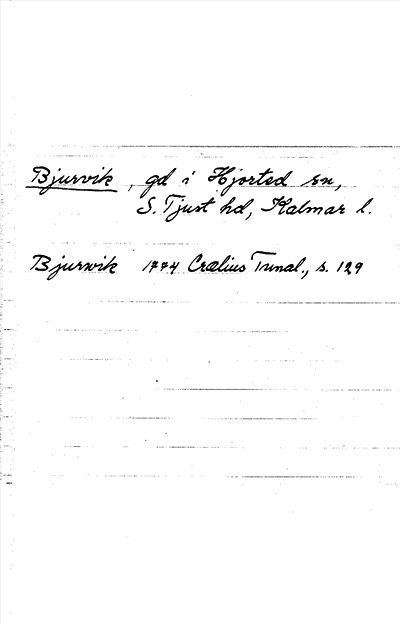 Bjurvik, gd i Hjorted sn,
S. Tjust hd, Kalmar l.
Bjurwik 1774 Crælius Tunal., s. 129